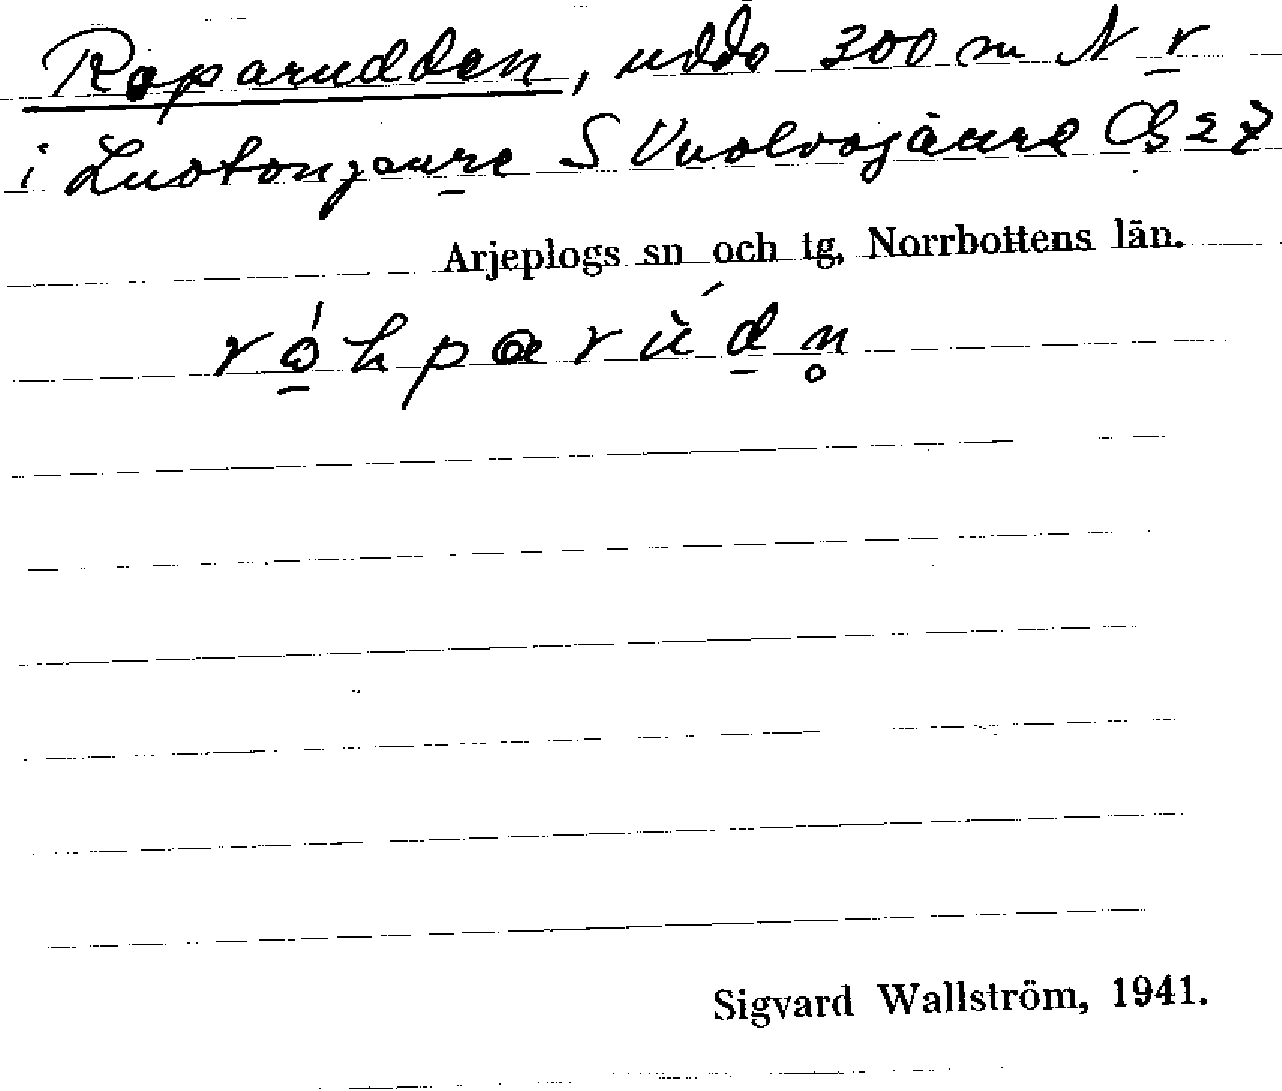 Raparudden, udde 300 m N r
i Luotonjaure S Vuolvojaure Cg 27
Arjeplogs sn och tg, Norrbottens län.
Sigvard Wallström, 1941.